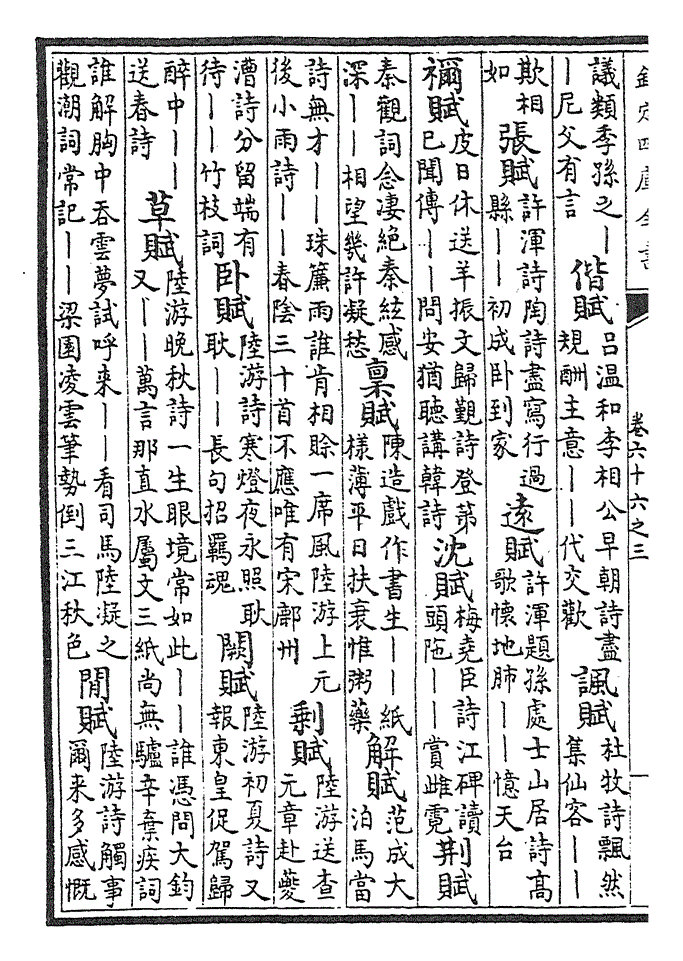 欽定四庫全書
卷六十六之三
一
議類季孫之丨
丨尼父有言
偕賦
吕温和李相公早朝詩盡
規酬主意丨丨代交歡
諷賦
杜牧詩飄然
集仙客丨丨
欺相
如
張賦
許渾詩陶詩盡寫行過
縣丨丨初成卧到家
遠賦
許渾題孫處士山居詩高
歌懷地肺丨丨憶天台
禰賦
皮日休送羊振文歸覲詩登第
已聞傳丨丨問安猶聽講韓詩
沈賦
梅堯臣詩江碑讀
頭陁丨丨賞雌霓
荆賦
秦觀詞念凄絶秦絃感
深丨丨相望幾許凝愁
稟賦
陳造戲作書生丨丨紙
様薄平日扶衰惟粥藥
解賦
范成大
泊馬當
詩無才丨丨珠簾雨誰肯相賒一席風陸游上元
後小雨詩丨丨春陰三十首不應唯有宋鄜州
剩賦
陸游送查
元章赴夔
漕詩分留端有
待丨丨竹枝詞
卧賦
陸游詩寒燈夜永照耿
耿丨丨長句招羈魂
闕賦
陸游初夏詩又
報東皇促駕歸
醉中丨丨
送春詩
草賦
陸游晚秋詩一生眼境常如此丨丨誰憑問大鈞
又丨丨萬言那直水屬文三紙尚無驢辛棄疾詞
誰解胸中吞雲夢試呼来丨丨看司馬陸凝之
觀潮詞常記丨丨梁園凌雲筆勢倒三江秋色
閒賦
陸游詩觸事
爾来多感慨